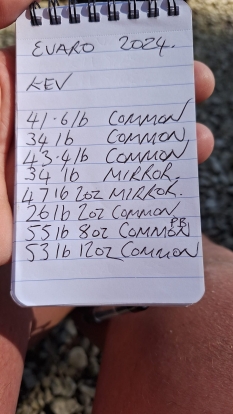 EVARO 2024.
KEV
41.6lb COMMON
34 lb COMMON
43.4lb COMMON
34 lb MIRROR.
47lb 2oz MIRROR.
26lb 2oz COMMON
55lb 8oz COMMON PB
53lb 12oz COMMON